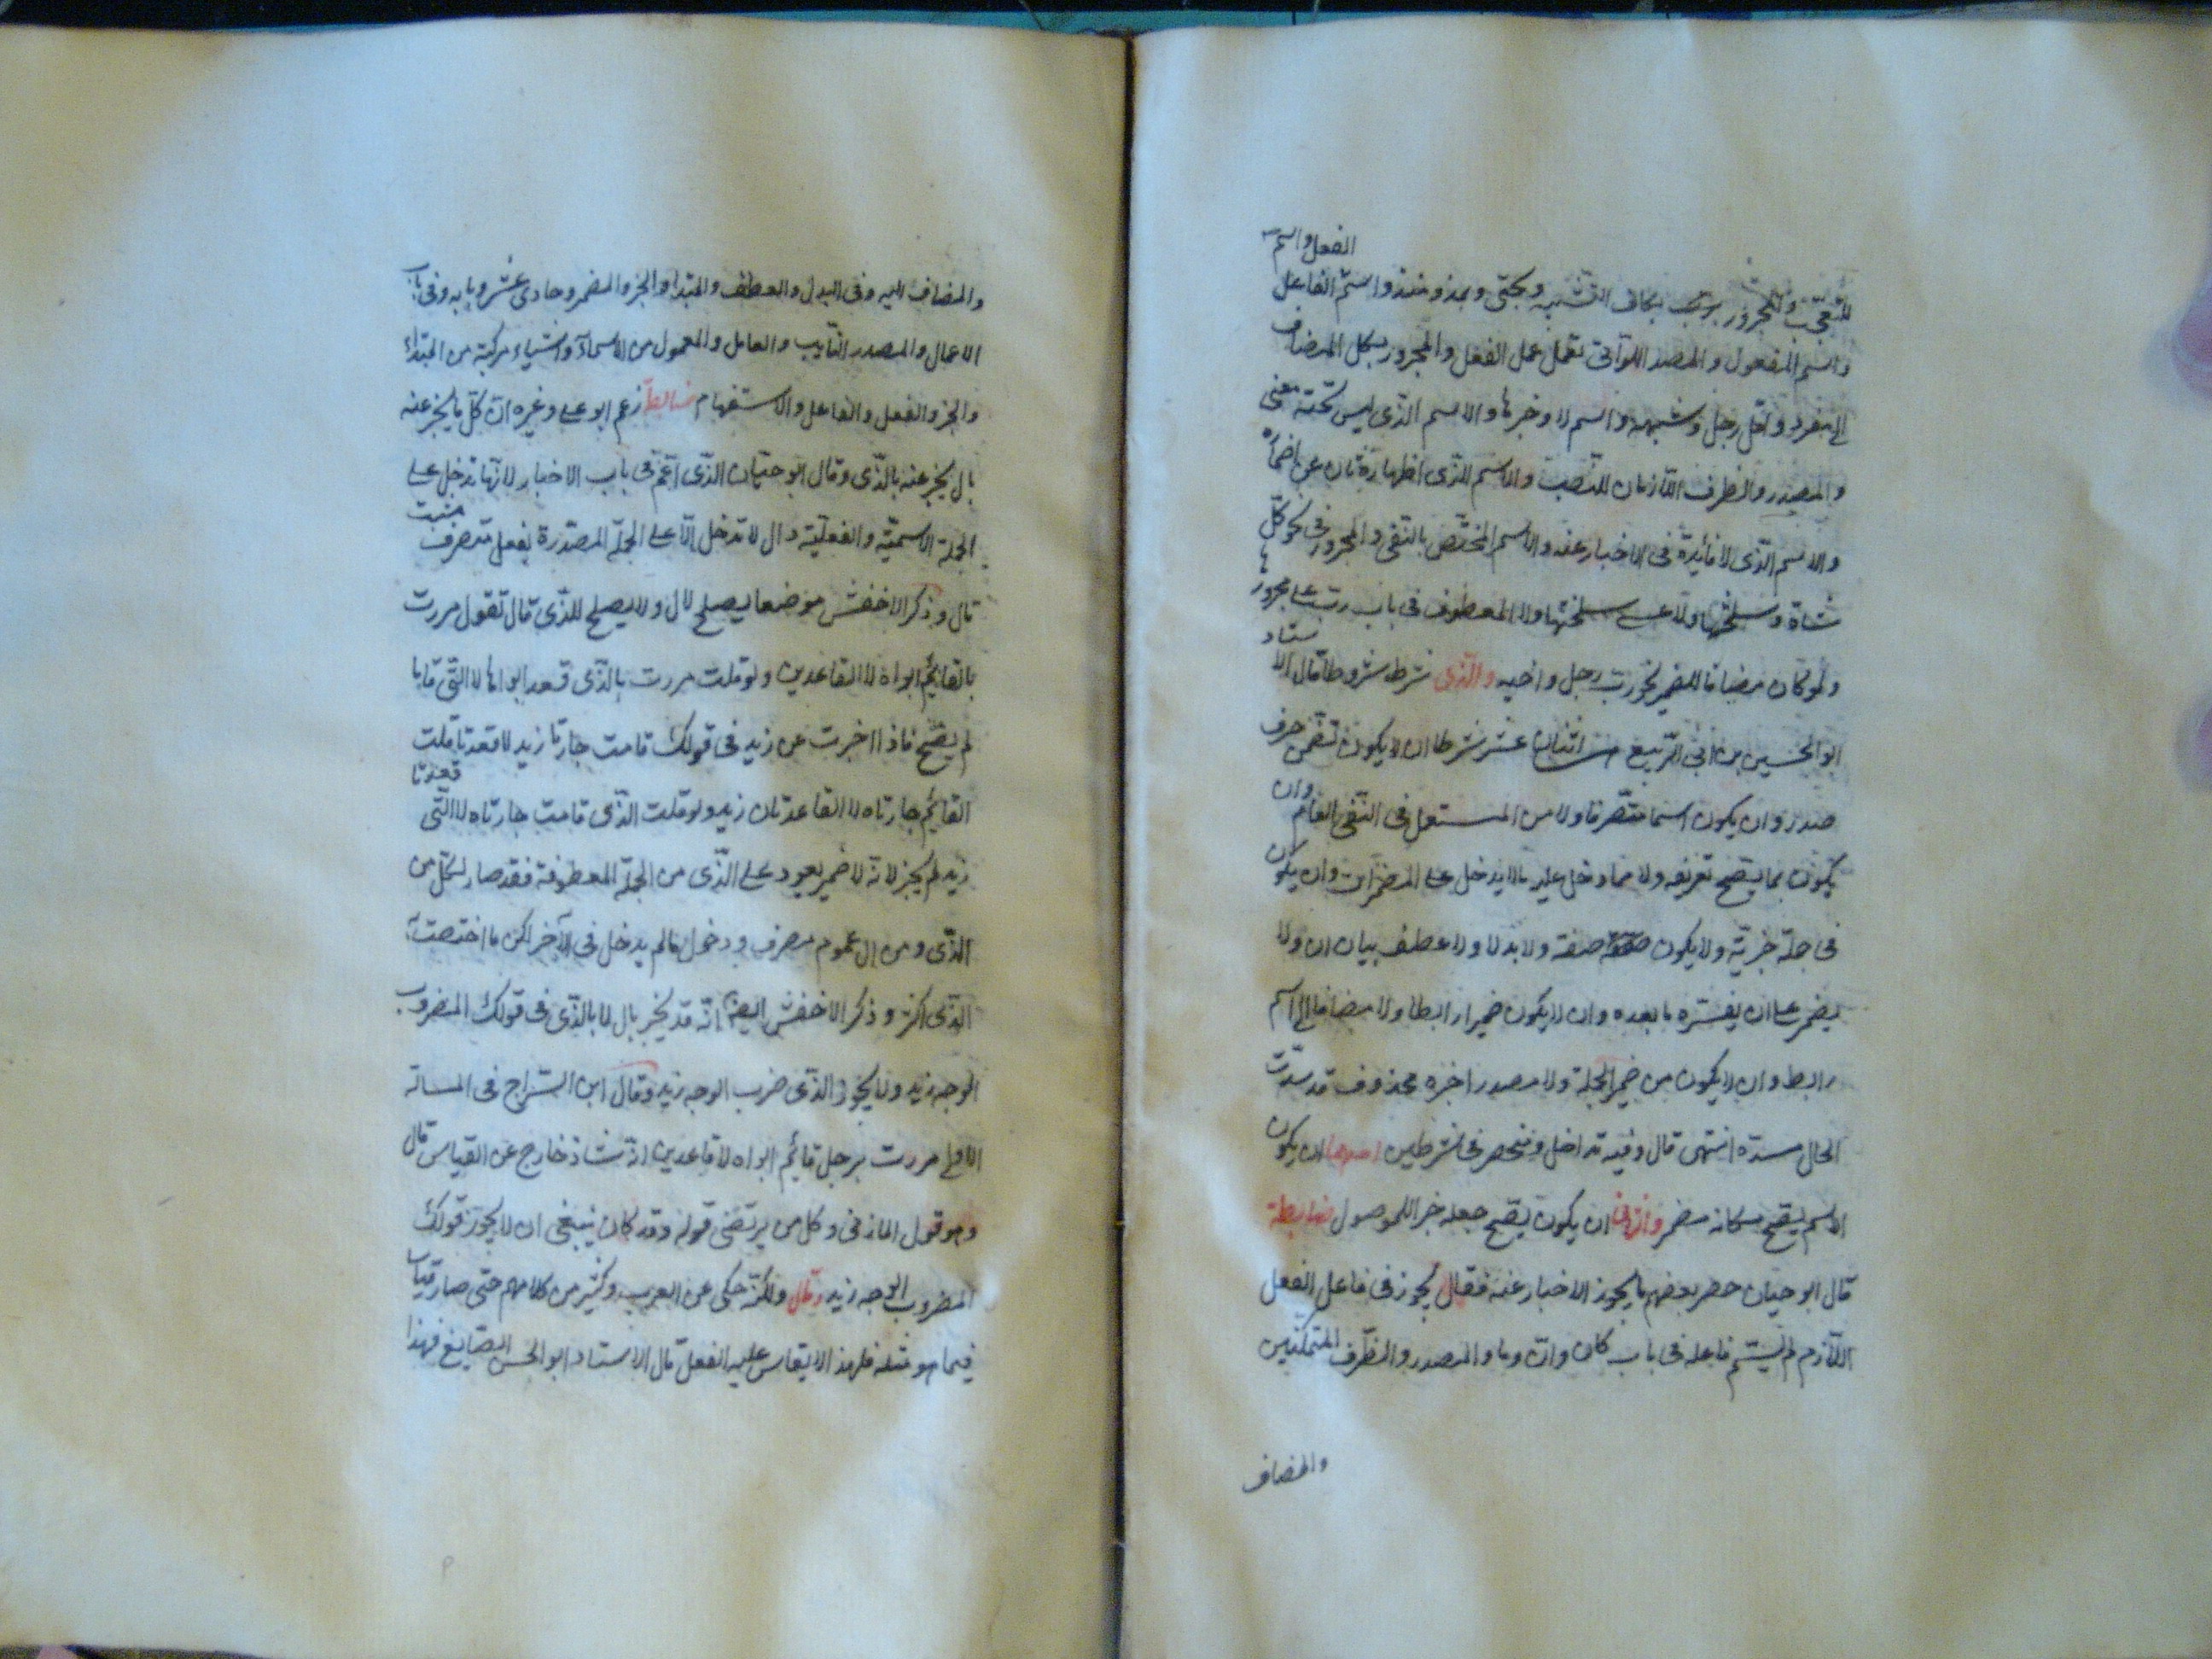 الفعل واسم
للتعجب والمجرور برب بكاف التشبيه وبحتى وبمذ ومنذ واسم الفاعل
واسم المفعول والمصدر اللواتى تعمل عمل الفعل والمجرور بكل المضاف
الى مفرد واقل رجل وشبهه واسم لا وخبرها والاسم الذى ليس تحته معنى
والمصدر والظرف اللازمان للنصب والاسم الذى اظهاره ثان عن اضماره
والاسم الذى لا فائدة فى الاخبار عنه والاسم المختص بالنفى والمجرور فى نحو كل
شاة وسخلتها ولا على سخلتها ولا المعطوف فى باب رب على مجرورها
ولو كان مضافا للضمير نحو رب رجل واخيه والذى شرط شروطا قال الاستاد
ابو الحسين بن ابى الربيع اثنان عشر شرطا ان لا يكون تضمن حرف
صدر وان يكون اسما متصرفا ولا من المستعمل فى النفى العام وان
يكون مما يصح تعريفه ولا مما دخل عليه ما لا يدخل على المضمرات وان يكون
فى جملة خبرية ولا يكون صفة ولا بدلا ولا عطف بيان ان ولا
يضمر على ان يفسره ما بعده وان لا يكون ضميرا رابطا ولا مضافا الى اسم
رابط وان لا يكون من ضمير الجملة ولا مصدرا خبره محذوف قد سدت
الحال مسده انتهى قال وفيه تداخل وينحصر فى شرطين احدهما ان يكون
الاسم يصح مكانه مضمر والثانى ان يكون يصح جعله خبرا للموصول ضابطة
قال ابو حيان حصر بعضهم ما يجوز الاخبار عنه فقال يجوز فى فاعل الفعل
اللازم لم يسم فاعله فى باب كان وان وما والمصدر والظرف المتمكنين
والمضاف
والمضاف اليه وفى البدل والعطف والمبتدا والخبر والمضمر وحادى عشر وبابه وفى باب
الاعمال والمصدر النايب والعامل والمعمول من الاسماء واشياء مركبة من المبتداء
والخبر والفعل والفاعل والاستفهام ضابط زعم ابو على وغيره ان كل ما يخبر عنه
بال يخبر عنه بالذى وقال ابو حيان الذى اعم فى باب الاخبار لانها تدخل على
الجملة الاسمية والفعلية وال لا تدخل الا على الجملة المصدرة بفعل متصرف مثبت
قال وذكر الاخفش موضعا يصلح لال ولا يصلح للذى قال تقول مررت
بالقائم ابواه لا القاعدين ولو قلت مررت بالذى قعد ابواها لا التى قاما
لم يصح فاذا اخبرت عن زيد فى قولك قامت جارتا زيد لا قعدتا قلت
القائم جارتاه لا القاعدتان زيد ولو قلت الذى قامت جارتاه لا التى قعدتا
زيد لم يجز لانه لا ضمير يعود على الذى من الجملة المعطوفة فقد صار لكل من
الذى ومن ال عموم تصرف ودخول ما لم يدخل فى الآخر لكن ما اختصت به
الذى اكثر وذكر الاخفش ايضا انه قد يخبر بال لا بالذى فى قولك المضروب
الوجه زيد ولا يجوز الذى ضرب الوجه زيد وقال ابن السراج فى المسالة
الاولى مررت برجل قائم ابواه لا قاعدين انه شاذ خارج عن القياس قال
وهو قول المازنى وكل من يرتضى قوله وقد كان ينبغى ان لا يجوز قولك
المضروب الوجه زيد وقال ولكنه حكى عن العرب وكثير من كلامهم حتى صار قياسا
فيما هو مثله فلهذا لا يقاس عليه الفعل قال الاستاد ابو الحسن الصايغ فهذا